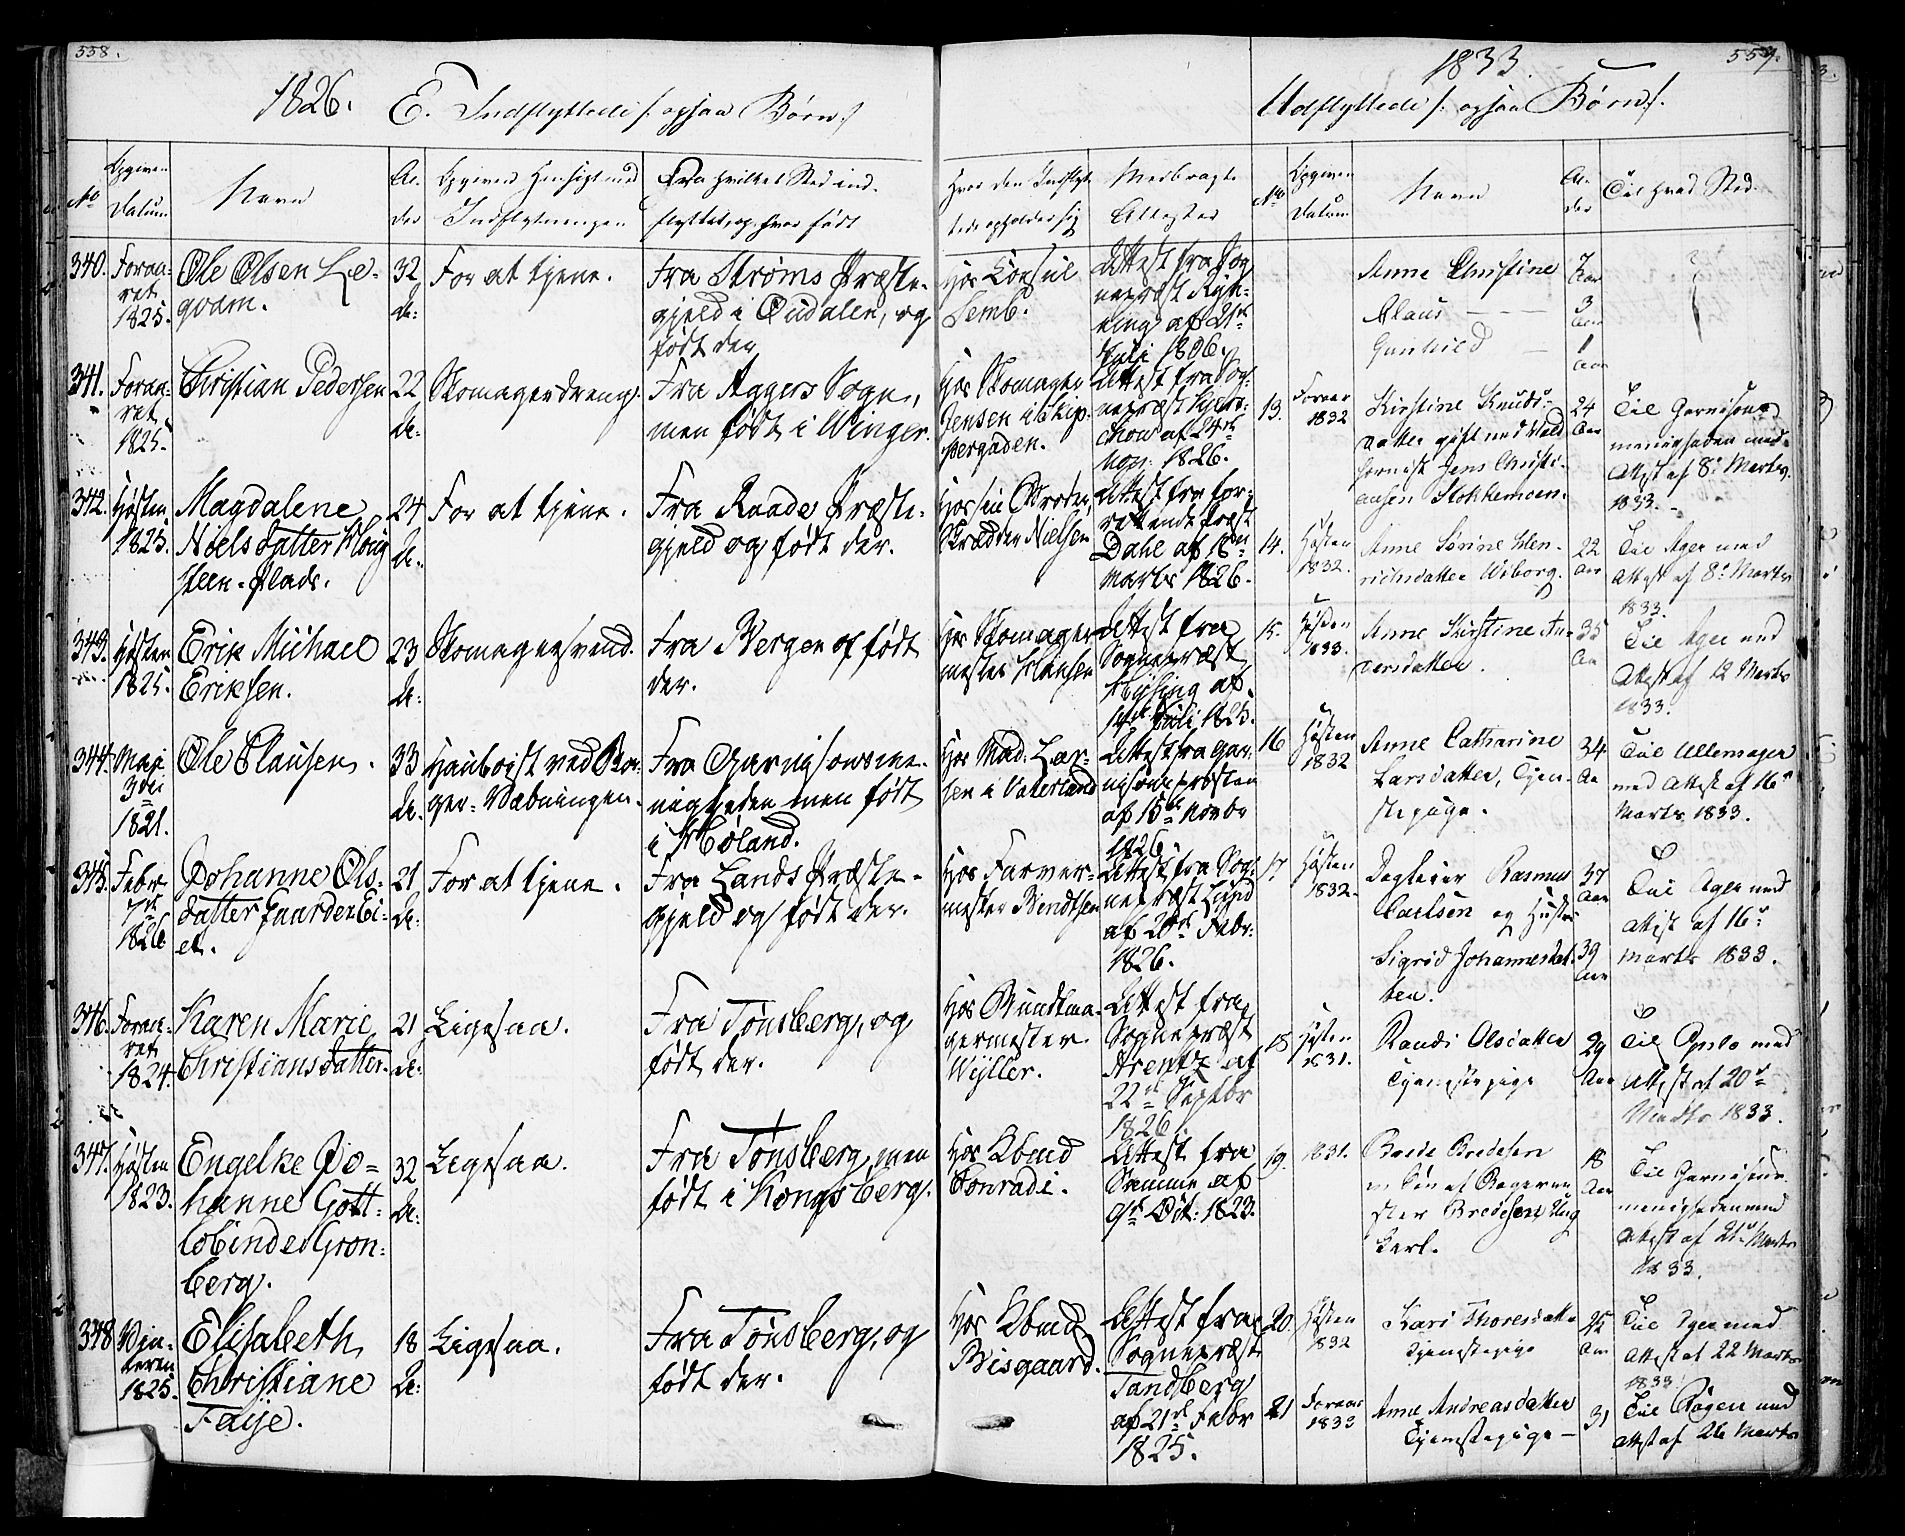 558.
1826. E. Indflyttede /: ogsaa Børn :/
No
Opgiven Datum
Navn
Alder
Opgiven Hensigt med Indflytningen
Fra hvilket Sted indflyttet, og hvor født
Hvor den Indflyttede opholder sig
Medbragte Attester
340. Foraaret 1825.
Ole Olsen Leqvam.
32 A:
For at tjene.
Fra Strøms Præstegjeld i Oudalen, og født der
Hos Consul Semb.
Attest fra Sognepræst Ryhning af 21de Juli 1806.
341. Foraaret 1825.
Christian Pedersen
22 A:
Skomagerdreng.
Fra Aggers Sogn, men født i Winger.
Hos Skomager Jensen i Skippergaden.
Attest fra Sognepræst af 24de Nov: 1826.
342. Høsten 1825.
Magdalene Nielsdatter Plads.
24 A:
For at tjene.
Fra Raade Præstegjeld og født der.
Hos sin Broder, Skrædder Nielsen
Attest fra forrettende Præst Dahl af Marts 1826.
343. Høsten 1825.
Erik Michael Eriksen.
23 A:
Skomagersvend.
Fra Bergen og født der.
Hos Skomagermester Hansen
Attest fra Sognepræst af 14de Juli 1825.
344. Maji 3die 1821.
Ole Clausen.
33 A:
Hauboist ved Borger-Væbningen.
Fra Garnisonsmenigheden men født i Høland.
Hos Mad: Larsen i Vaterland
Attest fra Garnisonsprovsten af 15de Novbr 1826.
345. Febr 7de 1826
Johanne Olsdatter Eiet.
21 A:
For at tjene.
Fra Lands Præstegjeld og født der.
Hos Farvermester Bendtsen
Attest fra Sognepræst Lund af 20de Febr: 1826.
346. Foraaret 1824.
Karen Marie Christiansdatter.
21 A:
Ligesaa.
Fra Tønsberg, og født der.
Hos Bundtmagermester Wyller.
Attest fra Sognepræst Arentz af 22de Septbr 1826.
347. Høsten 1823.
Engelke Johanne Gottlobine de Cronberg.
32 A:
Ligesaa.
Fra Tønsberg, men født i Kongsberg.
Hos Kbmd Conradi.
Attest fra Samme af 9de Oct: 1823.
348 Vinteren 1825.
Elisabeth Christiane Faye.
18 A:
Ligesaa.
Fra Tønsberg, og født der.
Hos Kbmd Bisgaard.
Attest fra Sognepræst Tandberg af 21de Febr 1825.
1833. 559.
Udflyttede /: ogsaa Børn :/
No
Opgiven Datum
Navn
Alder
Til hvad Sted.
Anne Christine 7 Aar
Claus 3 Aar
Gunhild 1 Aar
13. Foraar 1832
Kirstine Knudsdatter gift med Jens Christiansen Stokkemoen.
24 Aar
Til Garnisonsmenigheden med Attest af 8de Marts 1833.
14. Høsten 1832.
Anne Sørine Henrichsdatter Wiborg.
22 Aar
Til Ager med Attest af 8de Marts 1833.
15. Høsten 1833.
Anne Kirstine Andersdatter.
35 Aar
Til Ager med Attest af 12 Marts 1833.
16 Høsten 1832
Anne Catharine Larsdatter, Tjenestepige.
34 Aar
Til Ullensager med Attest af 16de Marts 1833.
17 Høsten 1832.
Daglejer Rasmus Carlsen og Hustru
37 Aar
Sigrid Johannesdatter.
39 Aar
Til Ager med Attest af 16de Marts 1833.
18 Høsten 1831.
Randi Olsdatter Tjenestepige
29 Aar
Til Opslo med Attest af 20de Marts 1833.
19. 1831.
Brede Bredesen en Søn af Bredesen Ung Karl.
18 Aar
Til Garnisonsmenigheden med Attest af 21de Marts 1833.
20. Høsten 1832
Kari Thoresdatter Tjenestepige
25 Aar
Til Ager med Attest af 22 Marts 1833
21 Foraar 1833
Anne Andreasdatter Tjenestepige
31
Til Røgen med Attest af 26 Marts